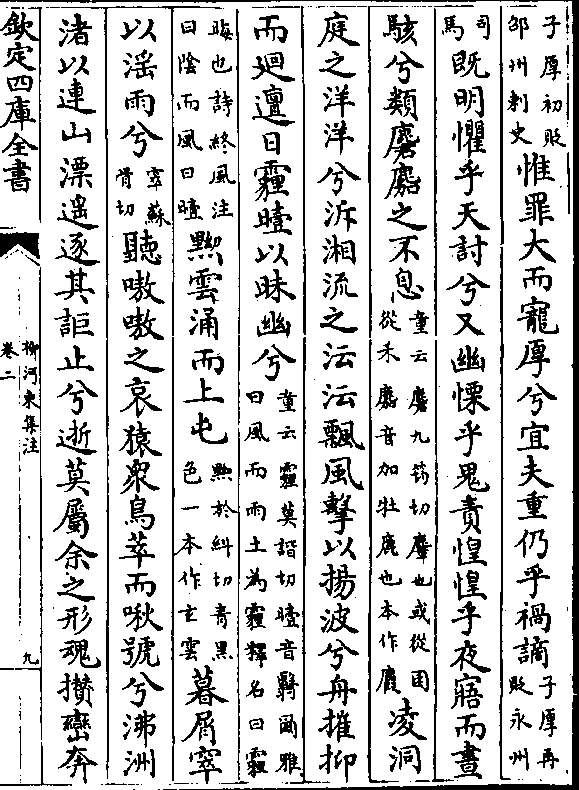 子厚初貶邵州刺史惟罪大而寵厚兮宜夫重仍乎禍謫子厚再貶永州
司馬既明懼乎天討兮又幽慄乎鬼責惶惶乎夜寤而晝
駭兮類麏麚之不息童云麏九筠切麞也或從囷從禾麚音加牡鹿也本作麚凌洞
庭之洋洋兮泝湘流之沄沄飄風擊以揚波兮舟摧抑
而廻邅日霾曀以昧幽兮童云霾莫諧切曀音翳爾雅曰風而雨土為霾釋名曰霾
晦也詩終風注曰陰而風曰曀黝雲涌而上屯黝於糾切青黑色一本作玄雲暮屑窣
以滛雨兮窣蘇骨切聽嗷嗷之哀猿衆鳥萃而啾號兮沸洲
渚以連山漂遥逐其詎止兮逝莫屬余之形魂攢巒奔
欽定四庫全書
柳河東集注
卷二
九